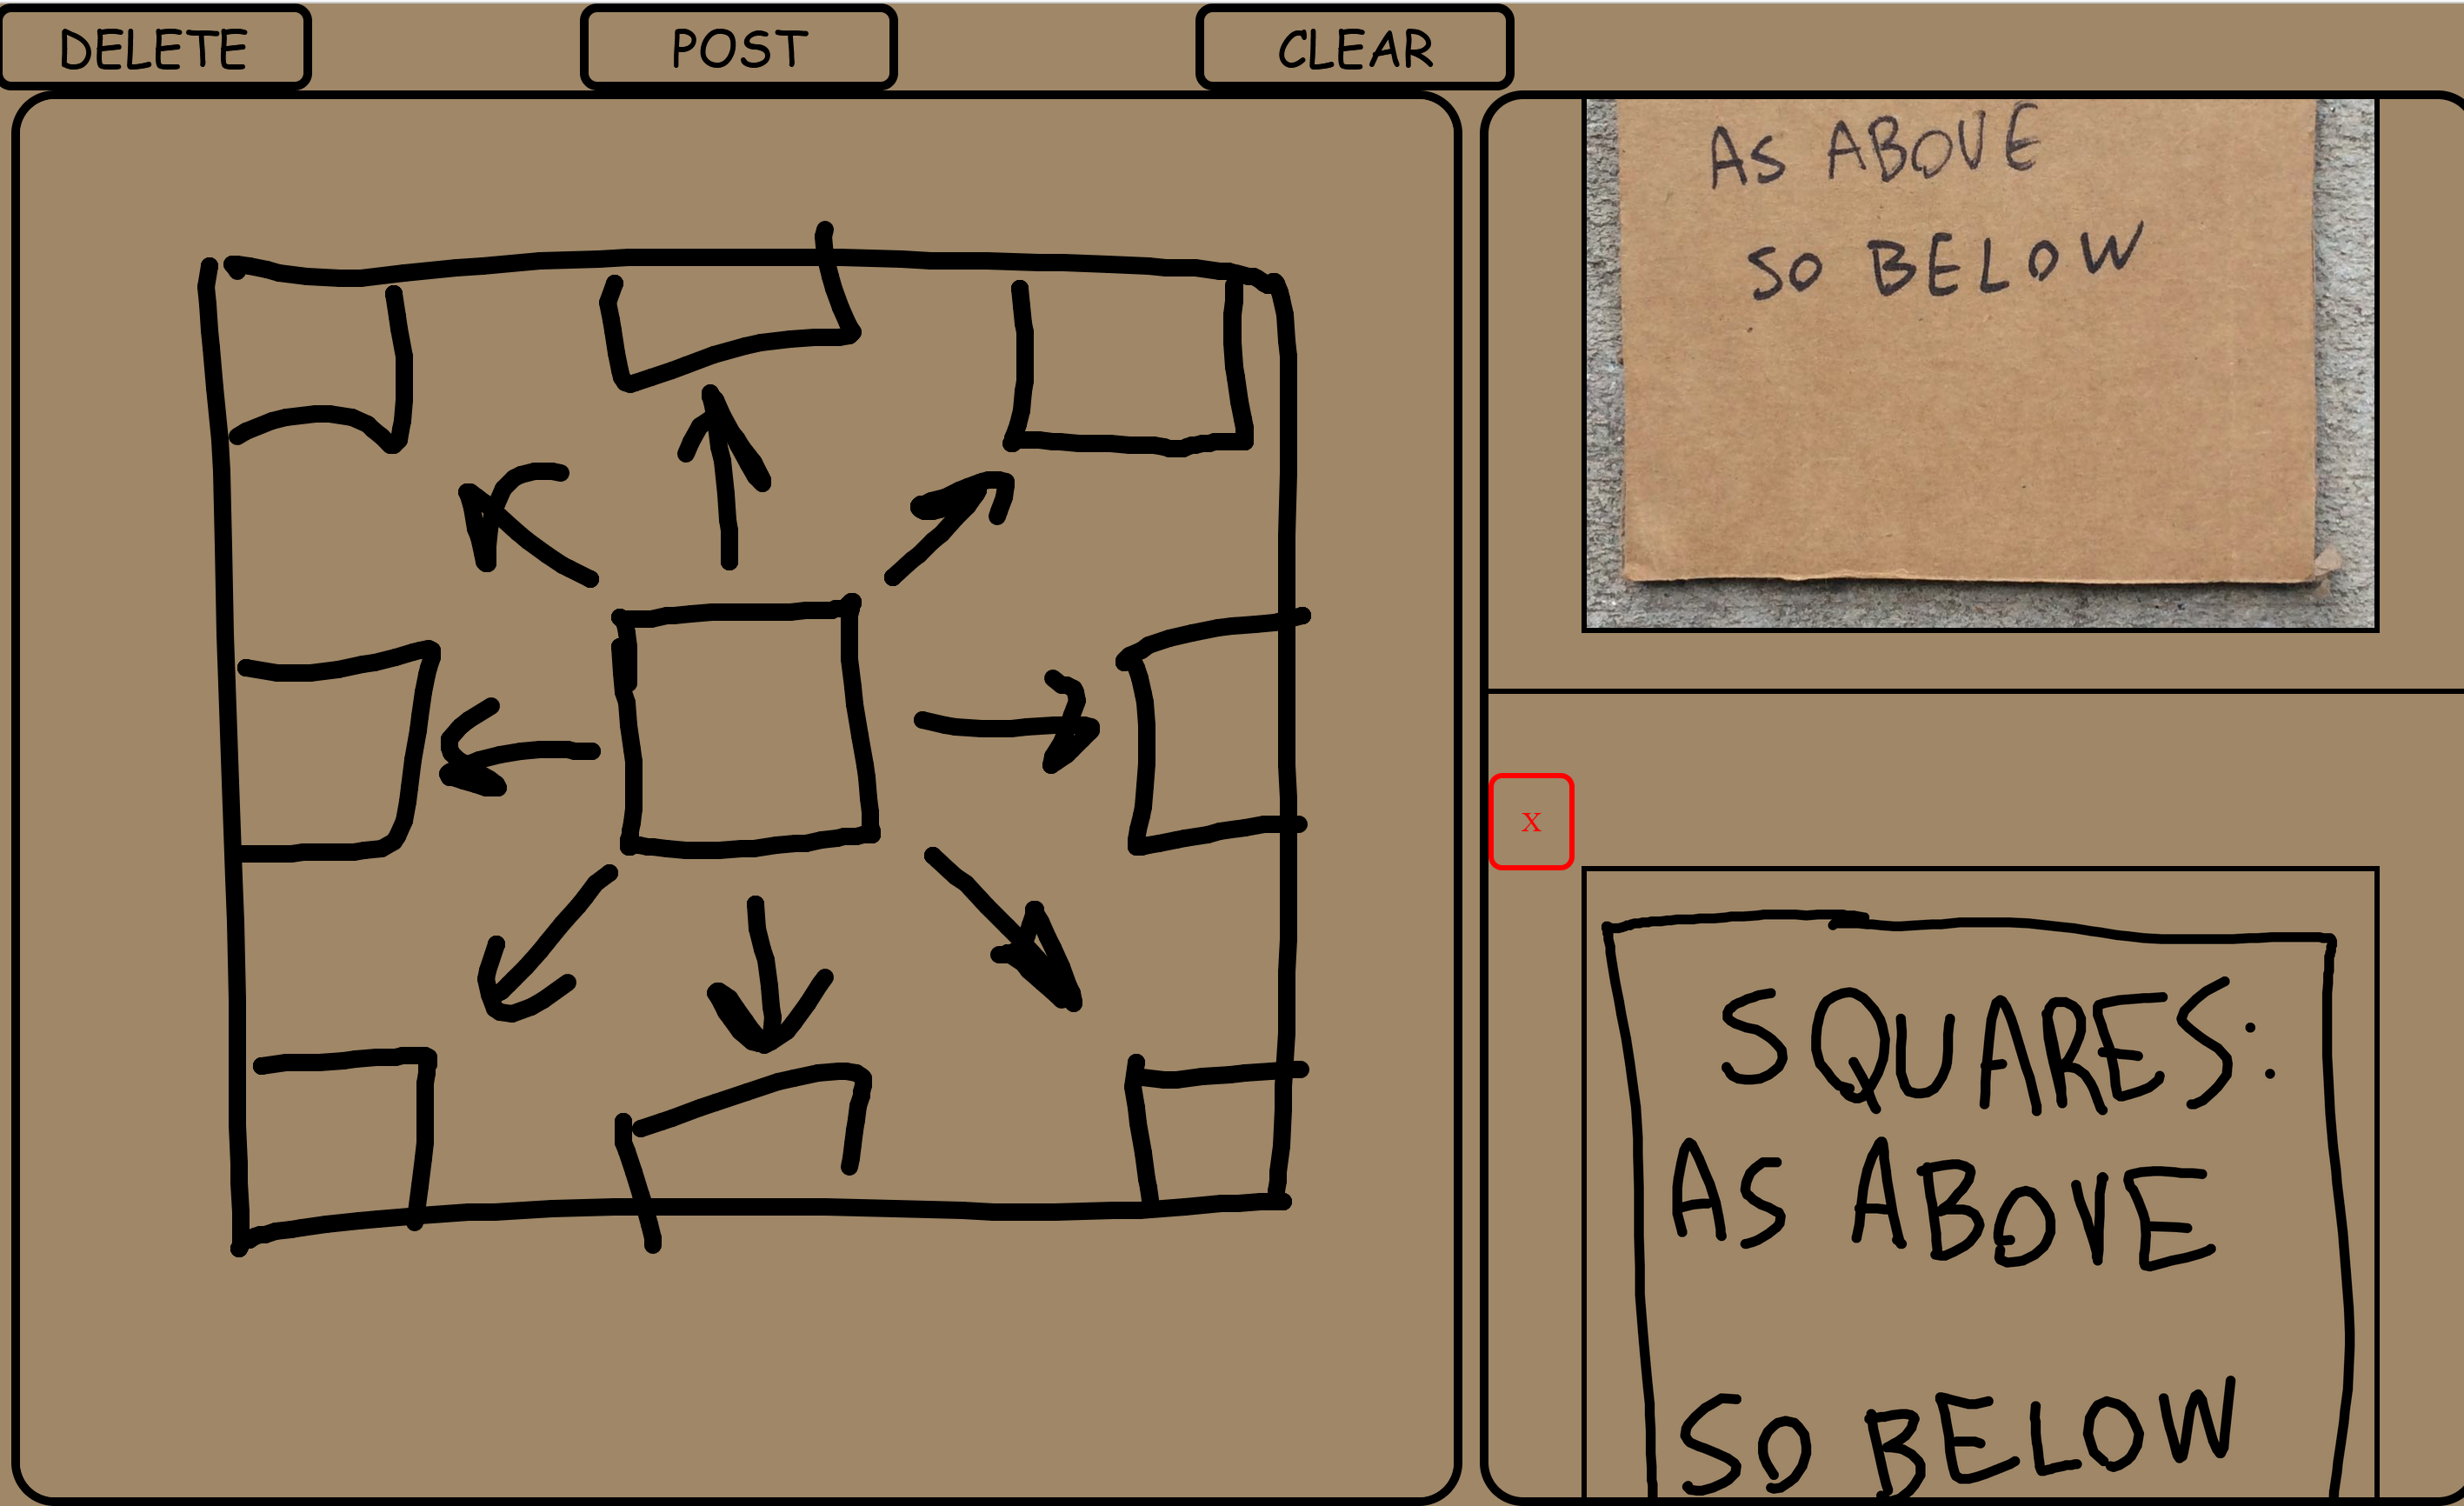 DELETE
POST
CLEAR
AS ABOVE
SO BELOW
X
SQUARES:
AS ABOVE
SO BELOW